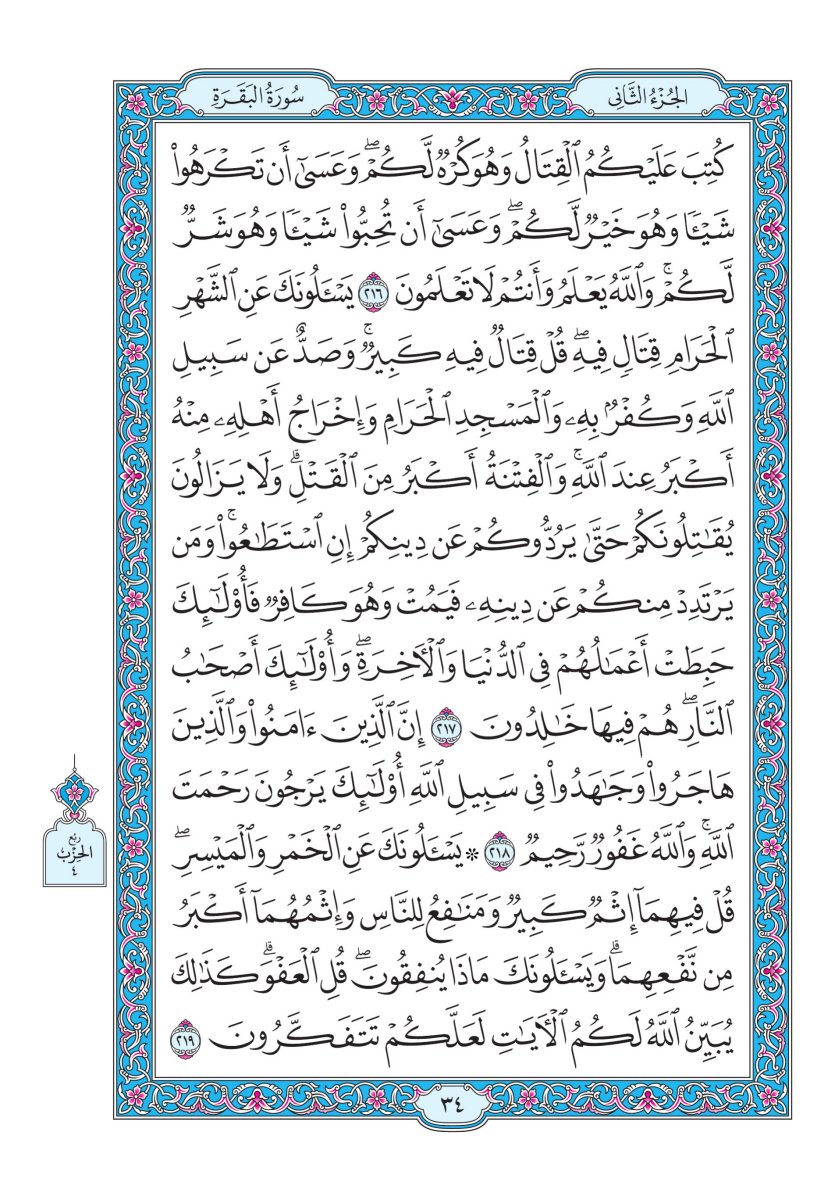 الجُزْءُ الثَّانِي
سُورَةُ البَقَرَةِ
كُتِبَ عَلَيۡكُمُ ٱلۡقِتَالُ وَهُوَ كُرۡهٞ لَّكُمۡۖ وَعَسَىٰٓ أَن تَكۡرَهُواْ
شَيۡـٔٗا وَهُوَ خَيۡرٞ لَّكُمۡۖ وَعَسَىٰٓ أَن تُحِبُّواْ شَيۡـٔٗا وَهُوَ شَرّٞ
لَّكُمۡۚ وَٱللَّهُ يَعۡلَمُ وَأَنتُمۡ لَا تَعۡلَمُونَ ٢١٦ يَسۡـَٔلُونَكَ عَنِ ٱلشَّهۡرِ
ٱلۡحَرَامِ قِتَالٖ فِيهِۖ قُلۡ قِتَالٞ فِيهِ كَبِيرٞۚ وَصَدٌّ عَن سَبِيلِ
ٱللَّهِ وَكُفۡرُۢ بِهِۦ وَٱلۡمَسۡجِدِ ٱلۡحَرَامِ وَإِخۡرَاجُ أَهۡلِهِۦ مِنۡهُ
أَكۡبَرُ عِندَ ٱللَّهِۚ وَٱلۡفِتۡنَةُ أَكۡبَرُ مِنَ ٱلۡقَتۡلِۗ وَلَا يَزَالُونَ
يُقَٰتِلُونَكُمۡ حَتَّىٰ يَرُدُّوكُمۡ عَن دِينِكُمۡ إِنِ ٱسۡتَطَٰعُواْۚ وَمَن
يَرۡتَدِدۡ مِنكُمۡ عَن دِينِهِۦ فَيَمُتۡ وَهُوَ كَافِرٞ فَأُوْلَٰٓئِكَ
حَبِطَتۡ أَعۡمَٰلُهُمۡ فِي ٱلدُّنۡيَا وَٱلۡأٓخِرَةِۖ وَأُوْلَٰٓئِكَ أَصۡحَٰبُ
ٱلنَّارِۖ هُمۡ فِيهَا خَٰلِدُونَ ٢١٧ إِنَّ ٱلَّذِينَ ءَامَنُواْ وَٱلَّذِينَ
هَاجَرُواْ وَجَٰهَدُواْ فِي سَبِيلِ ٱللَّهِ أُوْلَٰٓئِكَ يَرۡجُونَ رَحۡمَتَ
ٱللَّهِۚ وَٱللَّهُ غَفُورٞ رَّحِيمٞ ٢١٨ ۞ يَسۡـَٔلُونَكَ عَنِ ٱلۡخَمۡرِ وَٱلۡمَيۡسِرِۖ
قُلۡ فِيهِمَآ إِثۡمٞ كَبِيرٞ وَمَنَٰفِعُ لِلنَّاسِ وَإِثۡمُهُمَآ أَكۡبَرُ
مِن نَّفۡعِهِمَاۗ وَيَسۡـَٔلُونَكَ مَاذَا يُنفِقُونَۖ قُلِ ٱلۡعَفۡوَۗ كَذَٰلِكَ
يُبَيِّنُ ٱللَّهُ لَكُمُ ٱلۡأٓيَٰتِ لَعَلَّكُمۡ تَتَفَكَّرُونَ ٢١٩
ربع
الحِزْبِ
٤
٣٤